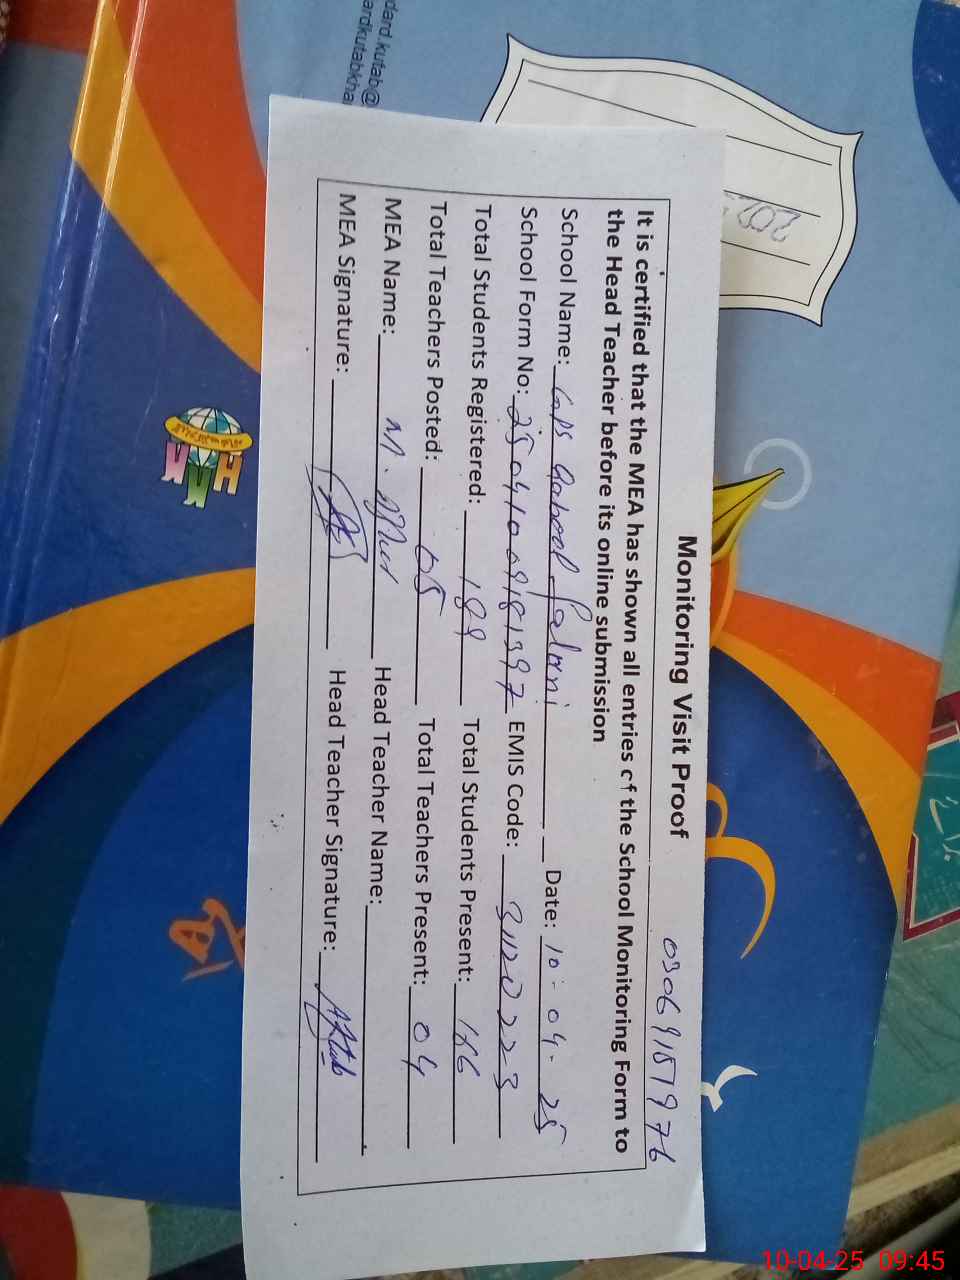 Monitoring Visit Proof
03069157976
It is certified that the MEA has shown all entries of the School Monitoring Form to
the Head Teacher before its online submission
School Name: Date: 10-04-25
School Form No: EMIS Code:
Total Students Registered: 189 Total Students Present: 166
Total Teachers Posted: 05 Total Teachers Present: 04
MEA Name: M. Head Teacher Name:
MEA Signature: Head Teacher Signature: Aftab
dard.kutab@
ardkutabkha
202
10-04-25 09:45